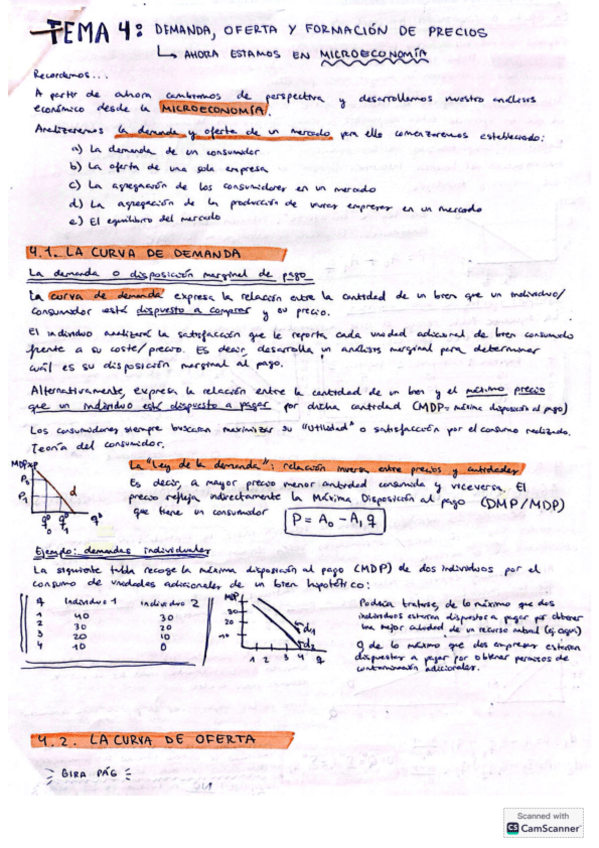 TEMA 4: DEMANDA, OFERTA Y FORMACIÓN DE PRECIOS
↳ AHORA ESTAMOS EN MICROECONOMÍA
Recordemos...
A partir de ahora cambiamos de perspectiva y desarrollamos nuestro análisis
económico desde la MICROECONOMÍA.
Analizaremos la demanda y oferta de un mercado para ello comenzaremos estableciendo:
a) La demanda de un consumidor
b) La oferta de una sola empresa
c) La agregación de los consumidores en un mercado
d) La agregación de la producción de varias empresas en un mercado
e) El equilibrio del mercado
4.1. LA CURVA DE DEMANDA
La demanda o disposición marginal de pago
La curva de demanda expresa la relación entre la cantidad de un bien que un individuo/
consumidor está dispuesto a comprar y su precio.
El individuo analizará la satisfacción que le reporta cada unidad adicional de bien consumido
frente a su coste/precio. Es decir, desarrolla un análisis marginal para determinar
cuál es su disposición marginal al pago.
Alternativamente, expresa la relación entre la cantidad de un bien y el máximo precio
que un individuo está dispuesto a pagar por dicha cantidad (MDP = máxima disposición al pago)
Los consumidores siempre buscaran maximizar su "utilidad" o satisfacción por el consumo realizado.
Teoría del consumidor.
La "Ley de la demanda": relación inversa entre precios y cantidades.
Es decir, a mayor precio menor cantidad consumida y viceversa. El
precio refleja indirectamente la Máxima Disposición al pago (DMP/MDP)
que tiene un consumidor
P = A₀ - A₁ q
MDP
P₀
P₁
d
Ejemplo: demandas individuales
La siguiente tabla recoge la máxima disposición al pago (MDP) de dos individuos por el
consumo de unidades adicionales de un bien hipotético:
q Individuo 1 individuo 2
1 40 30
2 30 20
3 20 10
4 10 0
MDP
30
20
10
d1
d2
1 2 3 4 q
Podría tratarse, de lo máximo que dos
individuos estarían dispuestos a pagar por obtener
una mejor calidad de un recurso natural (ej agua)
O de lo máximo que dos empresas estarían
dispuestas a pagar por obtener permisos de
contaminación adicionales.
4.2. LA CURVA DE OFERTA
GIRA PÁG
Scanned with
CS CamScanner